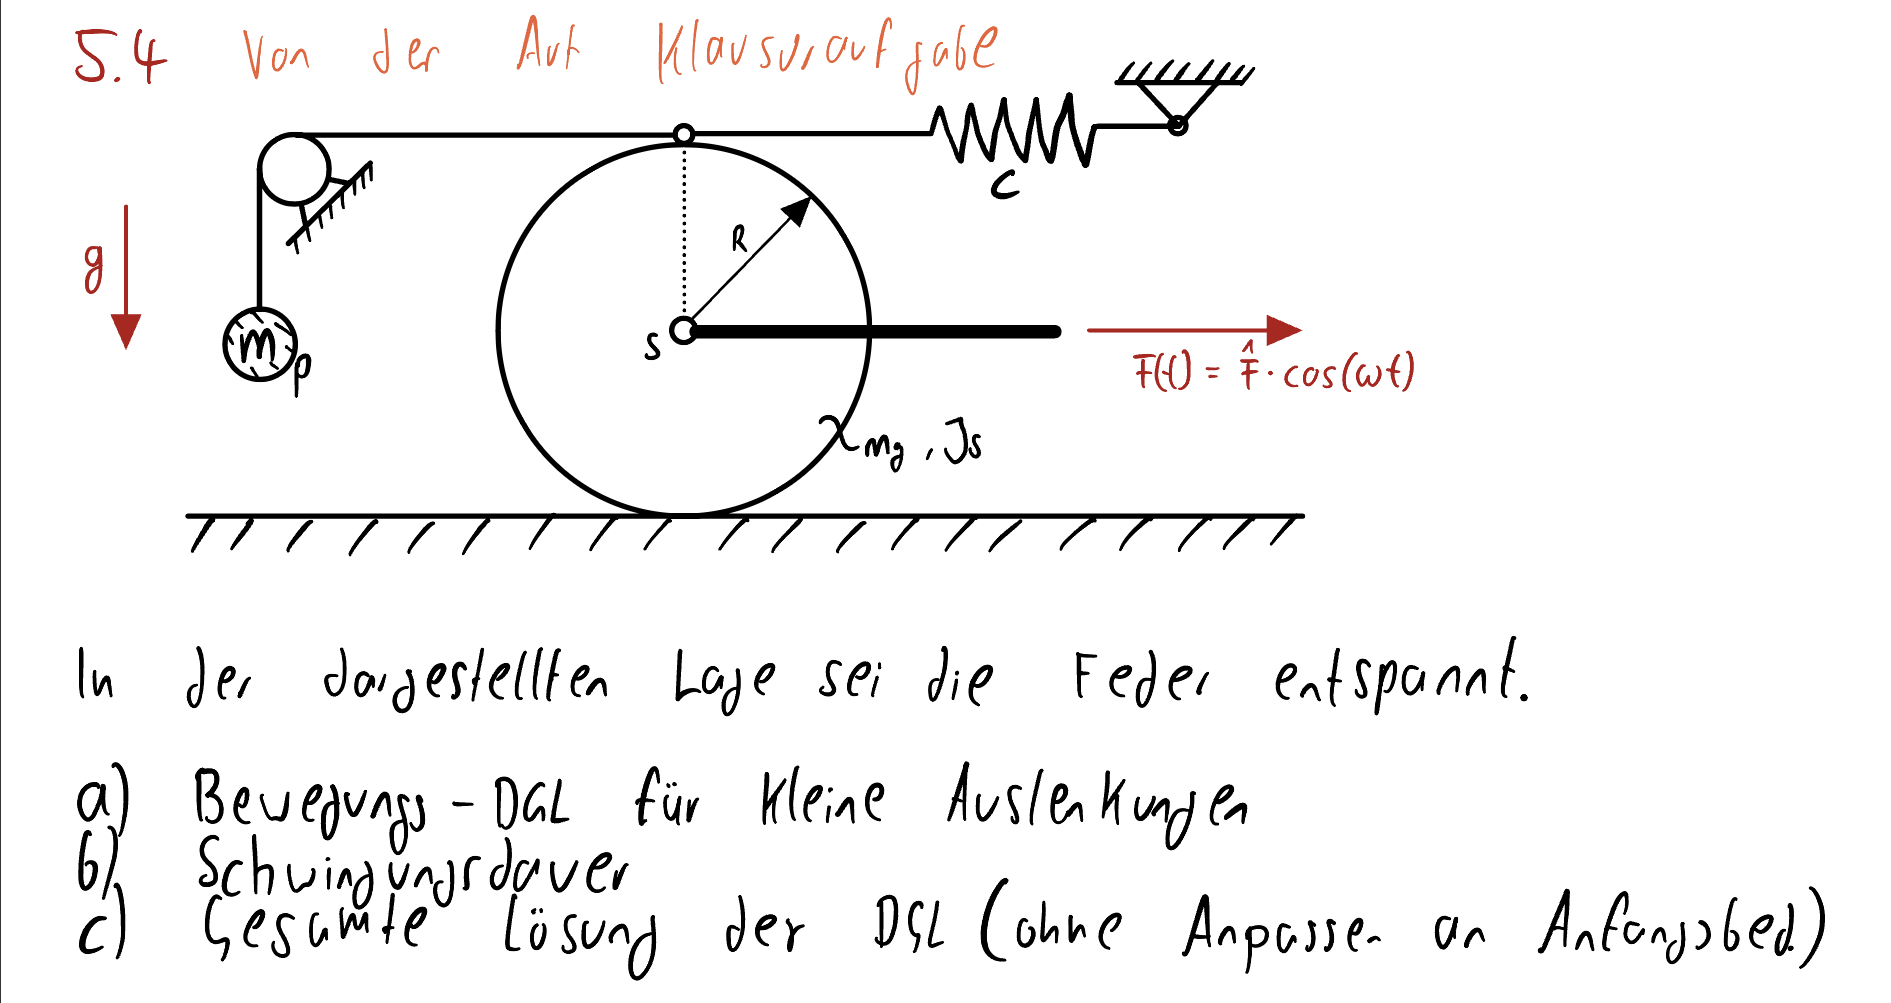 5.4 Von der Art Klausuraufgabe
c
g
R
m
p
s
F(t) = F̂ · cos(ωt)
mg, Js
In der dargestellten Lage sei die Feder entspannt.
a) Bewegungs-DGL für kleine Auslenkungen
b) Schwingungsdauer
c) Gesamte Lösung der DGL (ohne Anpassen an Anfangsbed.)